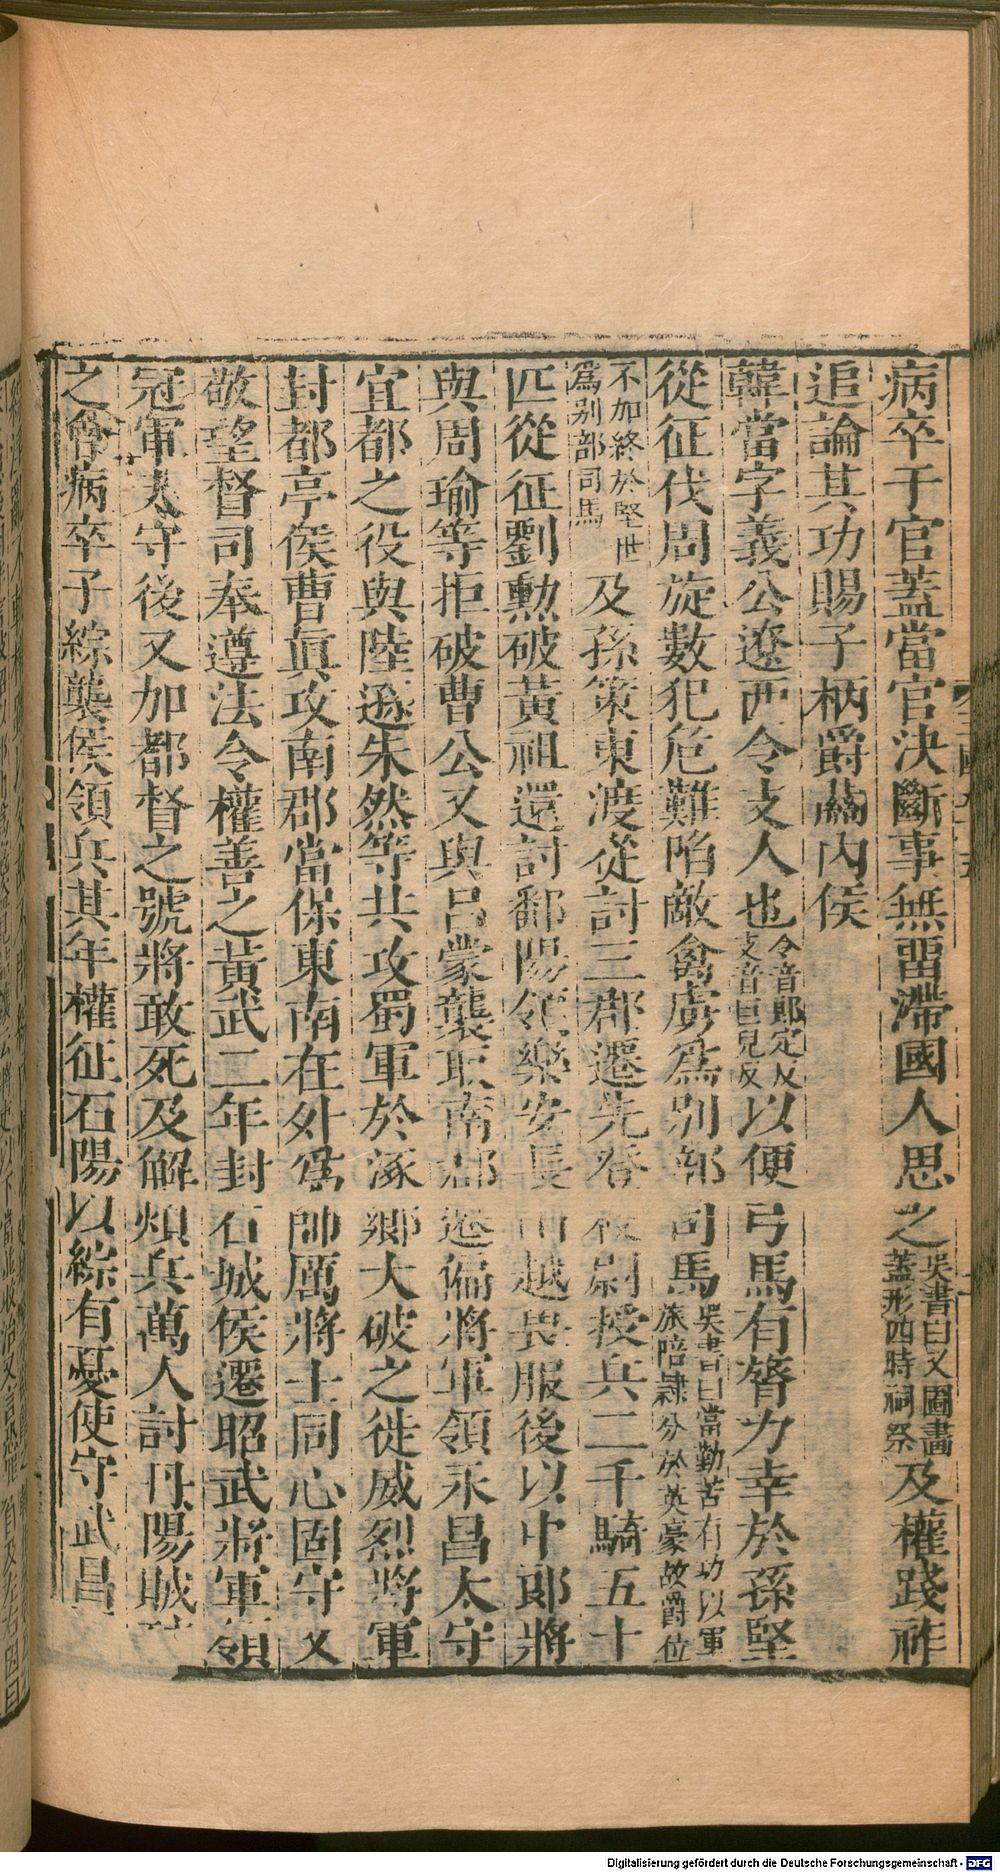 病卒于官蓋當官決斷事無畱滯國人思之吳書曰又圖畫蓋形四時祠祭及權踐祚
追論其功賜子柄爵關內侯
韓當字義公遼西令支人也令音郎定反支音巨兒反以便弓馬有膂力幸於孫堅
從征伐周旋數犯危難陷敵禽虜爲別部司馬吳書曰當勤苦有功以軍旅陪隷分於英豪故爵位
不加終於堅世爲別部司馬及孫策東渡從討三郡遷先登校尉授兵二千騎五十
匹從征劉勳破黃祖還討鄱陽領樂安長山越畏服後以中郎將
與周瑜等拒破曹公又與呂蒙襲取南郡遷偏將軍領永昌太守
宜都之役與陸遜朱然等共攻蜀軍於涿鄉大破之徙威烈將軍
封都亭侯曹眞攻南郡當保東南在外爲帥厲將士同心固守又
敬望督司奉遵法令權善之黃武二年封石城侯遷昭武將軍領
冠軍太守後又加都督之號將敢死及解煩兵萬人討丹陽賊
之會病卒子綜襲侯領兵其年權征石陽以綜有憂使守武昌
Digitalisierung gefördert durch die Deutsche Forschungsgemeinschaft - DFG